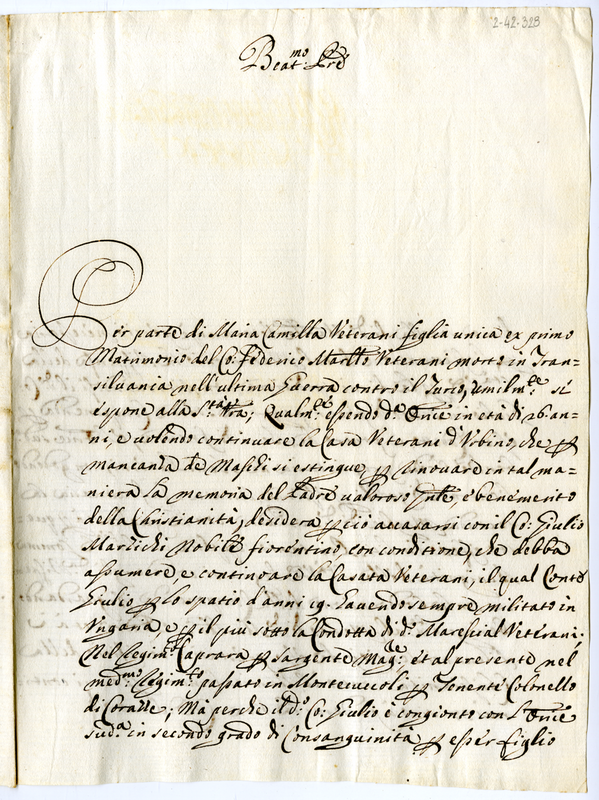 2-42-328
Beat.mo Pre
Per parte di Maria Camilla Veterani figlia unica ex primo
Matrimonio del Co: Federico Mar.llo Veterani morto in Tran=
silvania nell'ultima Guerra contro il Turco, umilm.te si
espone alla S.ta Vra; Qualm.te essendo d.a Once in età di 26 an=
ni, e volendo continuare la Casa Veterani d'Urbino, che p
mancanza de Maschi si estingue, p rinovare in tal ma=
niera la memoria del Padre valoroso, e benemerito
della Christianità, desidera p ciò accasarsi con il Co: Giulio
Marzichi Nobile fiorentino, con conditione, che debba
assumere, e continoare la Casata Veterani, il qual Conte
Giulio p lo spatio d'anni 19. havendo sempre militato in
Ungaria, e p il più sotto la Condotta di d.o Marescial Veterani.
Nel Regim.to Caprara p sargente Mag.re, et al presente nel
med.mo Regim.to passato in Montecuccoli p Tenente Colonello
di Corazze; Mà perche il d.o Co: Giulio è congionto con l'Once
sud.a in secondo grado di Consanguinità p esser figlio